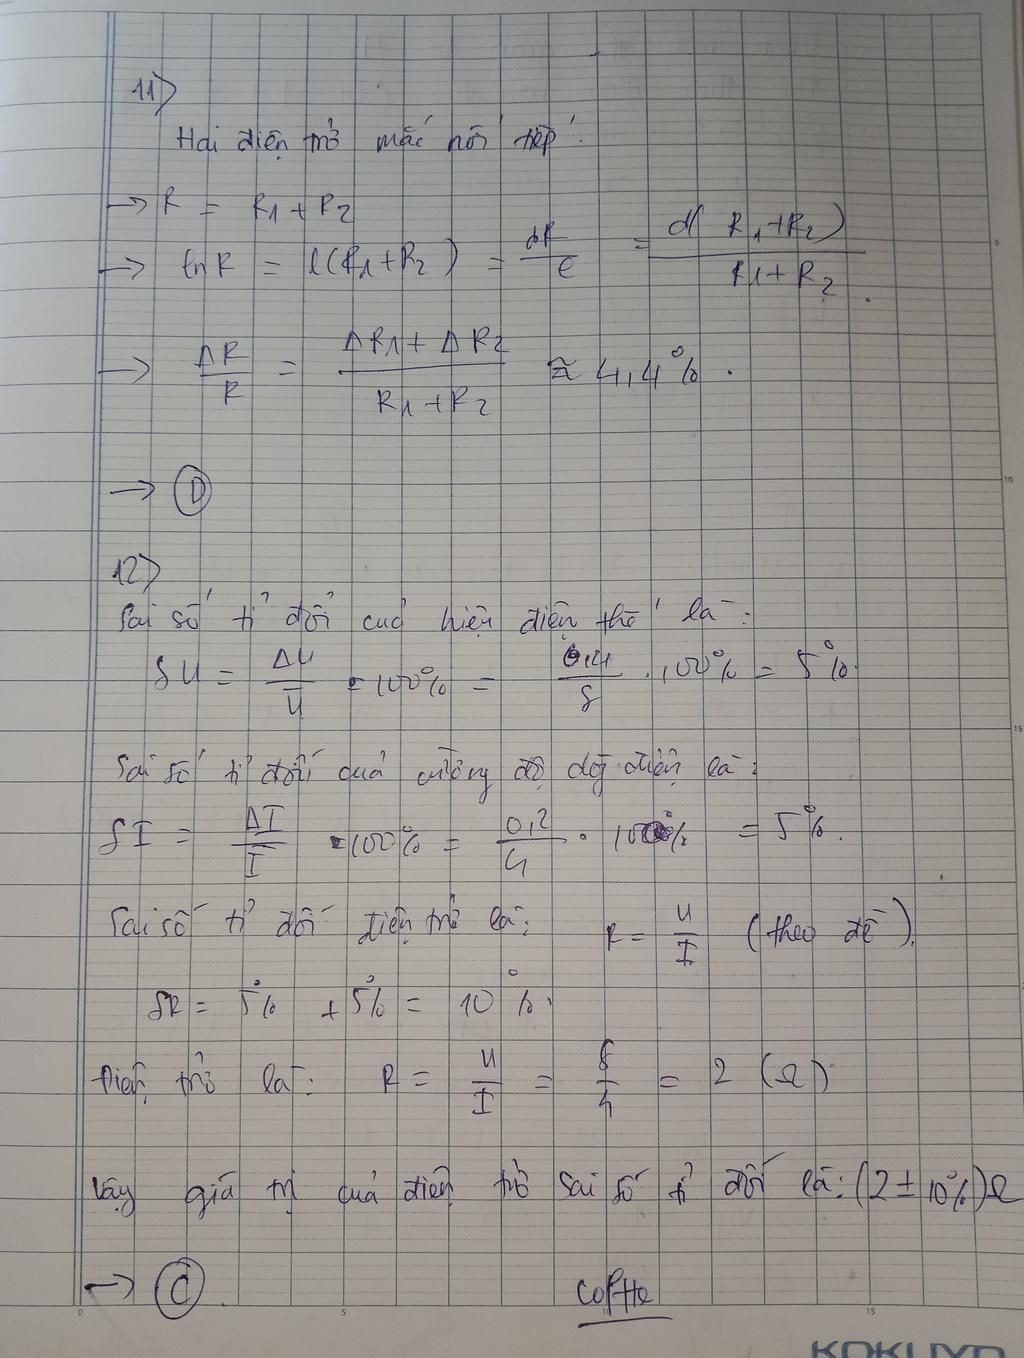 11>
Hai điện trở mắc nối tiếp:
→ R = R1 + R2
→ ln R = l(R1+R2) = dR/e = d(R1+R2)/R1+R2.
→ ΔR/R = ΔR1 + ΔR2/R1+R2 ≈ 4,4%.
→ D
12>
Sai số tỉ đối của hiệu điện thế là:
δU = ΔU/U̅ · 100% = 0,4/8 · 100% = 5%
Sai số tỉ đối của cường độ dòng điện là:
δI = ΔI/I̅ · 100% = 0,2/4 · 100% = 5%.
Sai số tỉ đối điện trở là: R = U/I (theo đề).
δR = 5% + 5% = 10%.
Điện trở là: R = U/I = 8/4 = 2 (Ω)
Vậy giá trị của điện trở sai số tỉ đối là: (2 ± 10%)Ω
→ C
KOKUYO
5
10
15
0
5
15